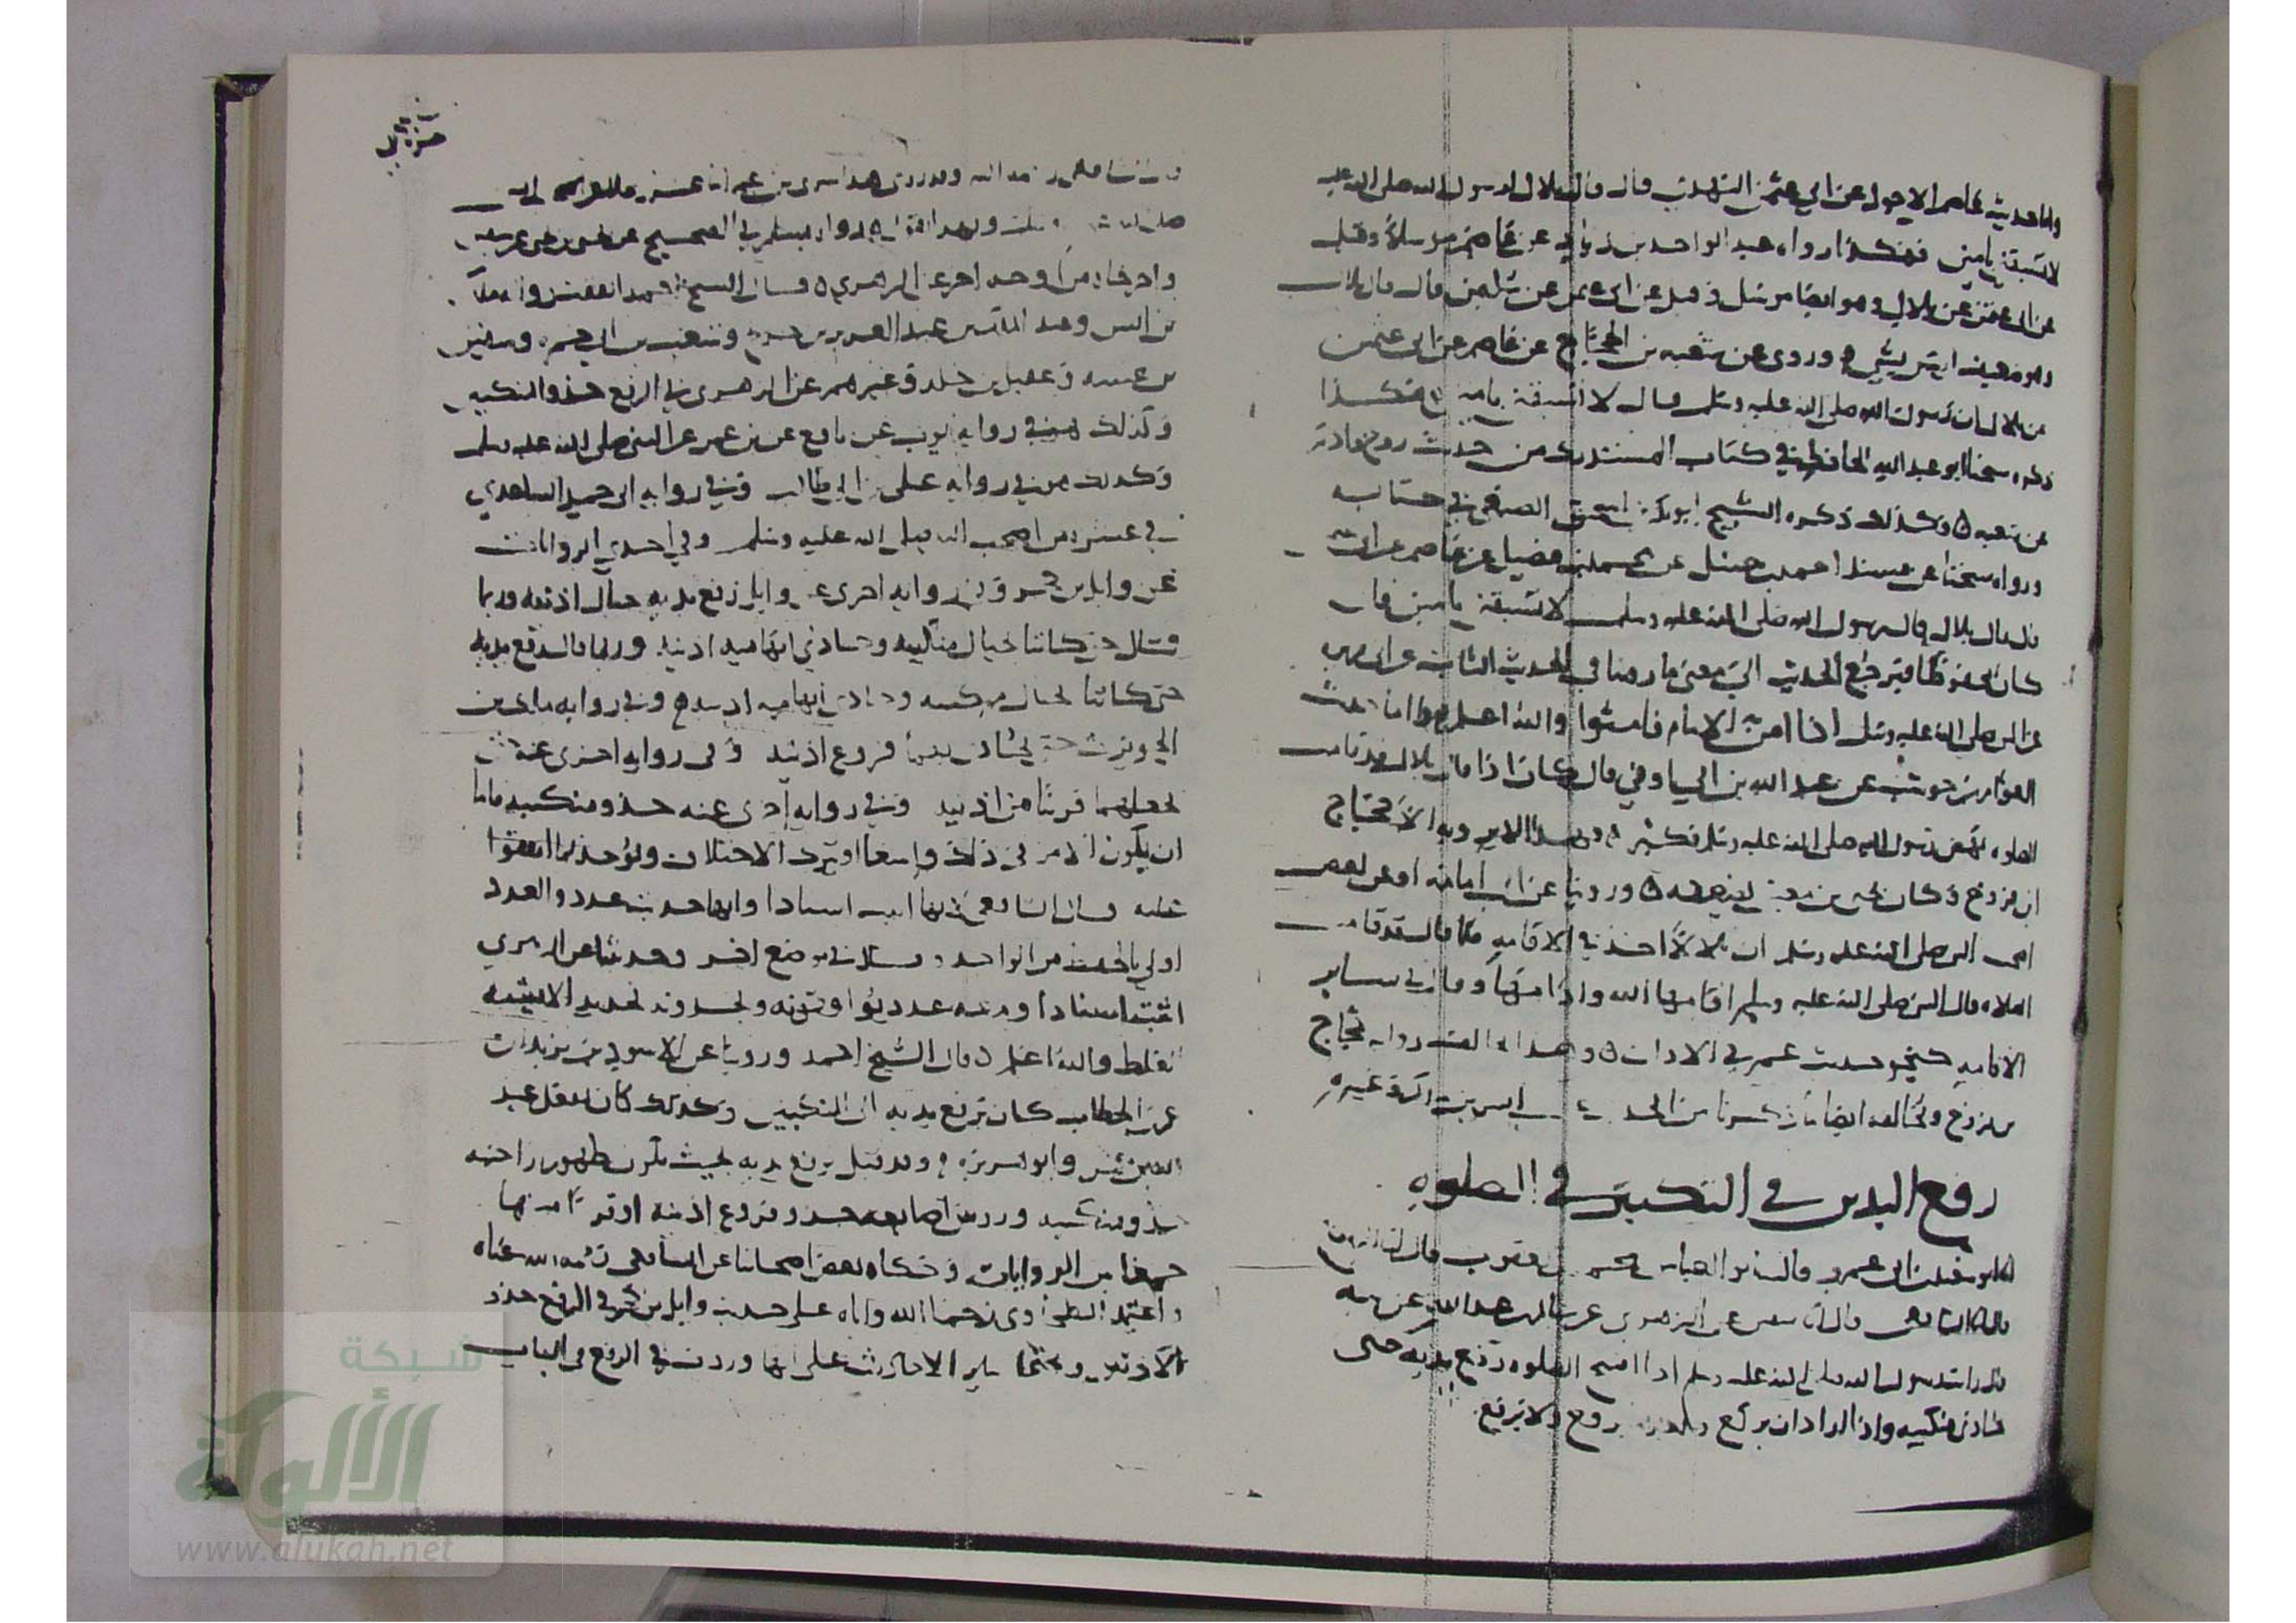 واما حديث عاصم الاحول عن ابي عثمن النهدي قال قال بلال لرسول الله صلى الله عليه
لا تسبقني بامين فهكذا رواه عبد الواحد بن زياد عن عاصم مرسلا وقيل
عن ابي عثمن عن بلال وهو ايضا مرسل وقيل عن ابي عثمن عن سلمن قال قال بلال
وهو ضعيف ليس بشي وروي عن شعبه بن الحجاج عن عاصم عن ابي عثمن
عن بلال ان رسول الله صلى الله عليه وسلم قال لا تسبقني بامين هكذا
ذكره شيخنا ابو عبد الله الحافظ في كتاب المستدرك من حديث روح
عن شعبه وكذلك ذكره الشيخ ابو بكر بن اسحق الصبغي في كتابه
ورواه شيخنا عن مسند احمد بن حنبل عن محمد بن فضيل عن عاصم عن ابي عثمن
قال قال بلال قال رسول الله صلى الله عليه وسلم لا تسبقني بامين فان
كان محفوظا فيرجع الحديث الى معنى ما روينا في الحديث الثابت عن ابي هريره
عن النبي صلى الله عليه وسلم اذا امن الامام فامنوا والله اعلم واما حديث
العوام بن حوشب عن عبد الله بن ابي اوفى قال كان اذا قال بلال قد قامت
الصلوه نهض رسول الله صلى الله عليه وسلم فكبر فهذا لا يرويه الا حجاج
ابن فروخ وكان يحيى بن معين يضعفه وروينا عن ابي امامه او عن بعض
اصحاب النبي صلى الله عليه وسلم ان بلالا اخذ في الاقامه فلما قال قد قامت
الصلاه قال النبي صلى الله عليه وسلم اقامها الله وادامها وقال في ساير
الاقامه كنحو حديث عمر في الاذان وهذا يخالف روايه حجاج
بن فروخ ويخالفه ايضا ما ذكرنا من الحديث عن انس بن مالك وغيره
رفع اليدين في التكبير في الصلوه
اخبرنا ابو سعيد بن ابي عمرو قال ثنا ابو العباس محمد بن يعقوب قال انا الربيع
قال انا الشافعي قال انا سفين عن الزهري عن سالم بن عبد الله عن ابيه
قال رايت رسول الله صلى الله عليه وسلم اذا افتتح الصلوه رفع يديه حتى
تحاذي منكبيه واذا اراد ان يركع وبعد ما يرفع ولا يرفع
قال الشافعي رحمه الله وقد روى هذا سوى بن عمر اثنا عشر رجلا عن النبي
صلى الله عليه وسلم وبهذا نقول رواه مسلم في الصحيح عن يحيى بن يحيى عن سفين
واخرجاه من اوجه اخر عن الزهري قال الشيخ احمد اتفقت روايه مالك
بن انس وعبد الملك بن عبد العزيز بن جريج وشعيب بن ابي حمزه وسفين
بن عيينه وعقيل بن خلد وغيرهم عن الزهري في الرفع حذو المنكبين
وكذلك هو في روايه ايوب عن نافع عن بن عمر عن النبي صلى الله عليه وسلم
وكذلك هو في روايه علي بن ابي طالب وفي روايه ابي حميد الساعدي
في عشره من اصحاب النبي صلى الله عليه وسلم وفي احدى الروايات
عن وايل بن حجر وفي روايه اخرى عن وايل رفع يديه حيال اذنيه وربما
قال حتى كانتا بحيال منكبيه وحاذى بابهاميه اذنيه وربما قال رفع يديه
حتى كانتا بحيال منكبيه وحاذى ابهاميه اذنيه وفي روايه مالك بن
الحويرث حتى يحاذي بهما فروع اذنيه وفي روايه اخرى عنه حتى
يجعلهما قريبا من اذنيه وفي روايه اخرى عنه حذو منكبيه فاما
ان يكون الامر في ذلك واسعا او يترك الاختلاف ويؤخذ بما اتفقوا
عليه قال الشافعي لانها اثبت اسنادا وانها حديث عدد والعدد
اولى بالحفظ من الواحد وقال في موضع اخر وحديثنا عن الزهري
اثبت اسنادا ومعه عدد يوافقونه ويحدونه تحديدا لا يشبه
الغلط والله اعلم قال الشيخ احمد وروينا عن الاسود بن يزيد ان
عمر بن الخطاب كان يرفع يديه الى المنكبين وكذلك كان يفعل عبد
الله بن عمر وابو هريره وقد قيل يرفع يديه بحيث تكون ظهور راحتيه
حذو منكبيه وروس اصابعه حذو فروع اذنيه او قريبا منها
جمعا بين الروايات وحكاه بعض اصحابنا عن الشافعي رحمه الله عناه
واعتمد الطحاوي رحمنا الله واياه على حديث وايل بن حجر في الرفع حذو
الاذنين وحمل ساير الاحاديث على انها وردت في الرفع في الثياب